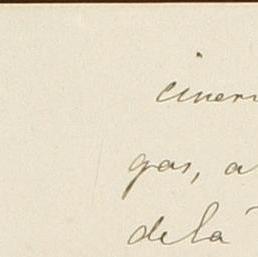 cinem
gas, a
de la